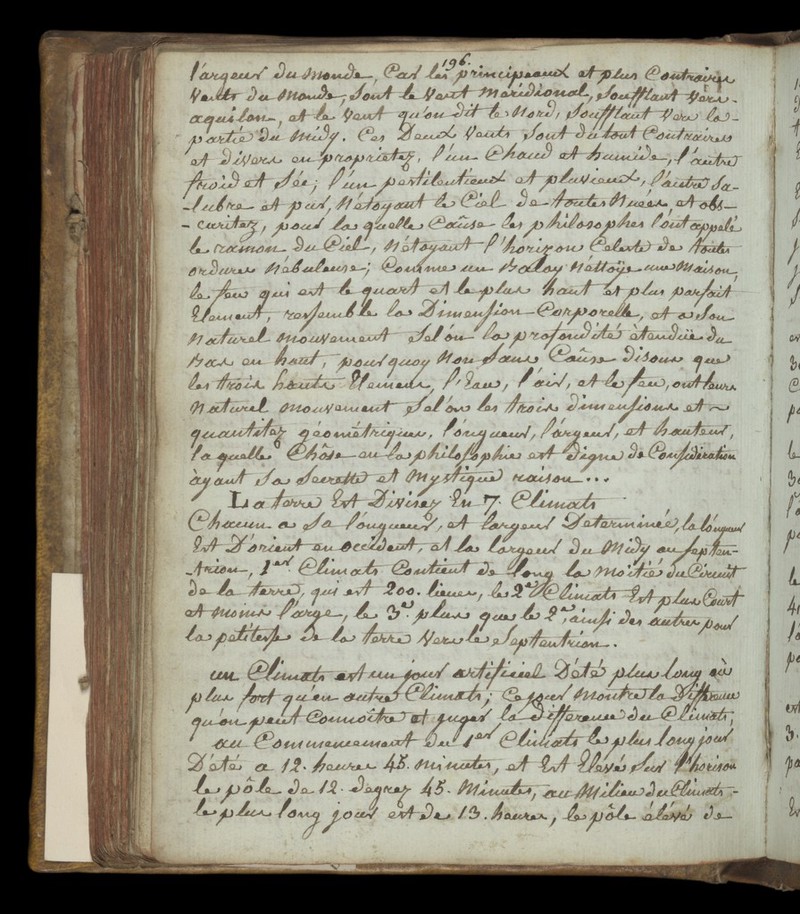 196.
l'argeur du monde, Car les principeaux et plus Contraires
Vents du Monde, sont le Vent Méridional, soufflant Vers
aquilon, et le Vent qu'on dit le Nord, soufflant Vers la-
partie du Midy. Ces Deux Vents sont du tout Contraires
et divers en proprietez, l'un Chaud et humide, l'autre
froid et séc; l'un pestilentieux et pluvieux, l'autre sa-
-lubre et pur, Nétoyant le Ciel de toutes Nuées et obs-
-curitez, pour la quelle Caûse les philosophes l'ont appelé
le ramon du Ciel, Nétoyant l'horizon Celeste de toutes
ordures Nébuleuse; Comme un Balay Néttoÿe une Maison,
le feu qui est le quart et le plus haut et plus parfait
Element, ressemble la Dimension Corporelle, et a son
Naturel mouvement selon la profondité étendüe du
Bas en haut, pourquoy Non sans Caûse disons que
les trois hauts Elemens, l'Eau, l'air, et le feu, ont leurs
Naturel mouvement selon les trois dimensions et
quantitéz géométriques, l'óngueur, l'árgeur, et hauteur,
la quelle Chôse en la philosophie est digne de Considération
àyant sa secrette et Mystique raison...
La terre Est Divisez En 7. Climats
Chacun a sa l'óngueur, et largeur Determinée, la lóngueur
Est D'orient en occident, et la largeur du Midy au septen-
-trion, 1er Climats Contient de long la Moitié du Circuit
de la terre, qui est 200. lieues, le 2e Climats Est plus Court
et Moins l'arge, le 3e plus que le 2e, ainsi des autres pour
la petitesse de la terre Vers le septentrion.
un Climats est un jour artificiel D'été plus long où
plus fort qu'en autres Climats; Ce jour Montre la Difference
qu'on peut Connoître et juger la difference du Climats,
au Commencement du 1er Climats le plus long jour
D'été a 12. heures 45. minutes, et Est Elevé sur l'horison
le pôle de 12. degrez 45. Minutes, au Milieu du Climats-
le plus long jour est de 13. heures, le pôle élévé de